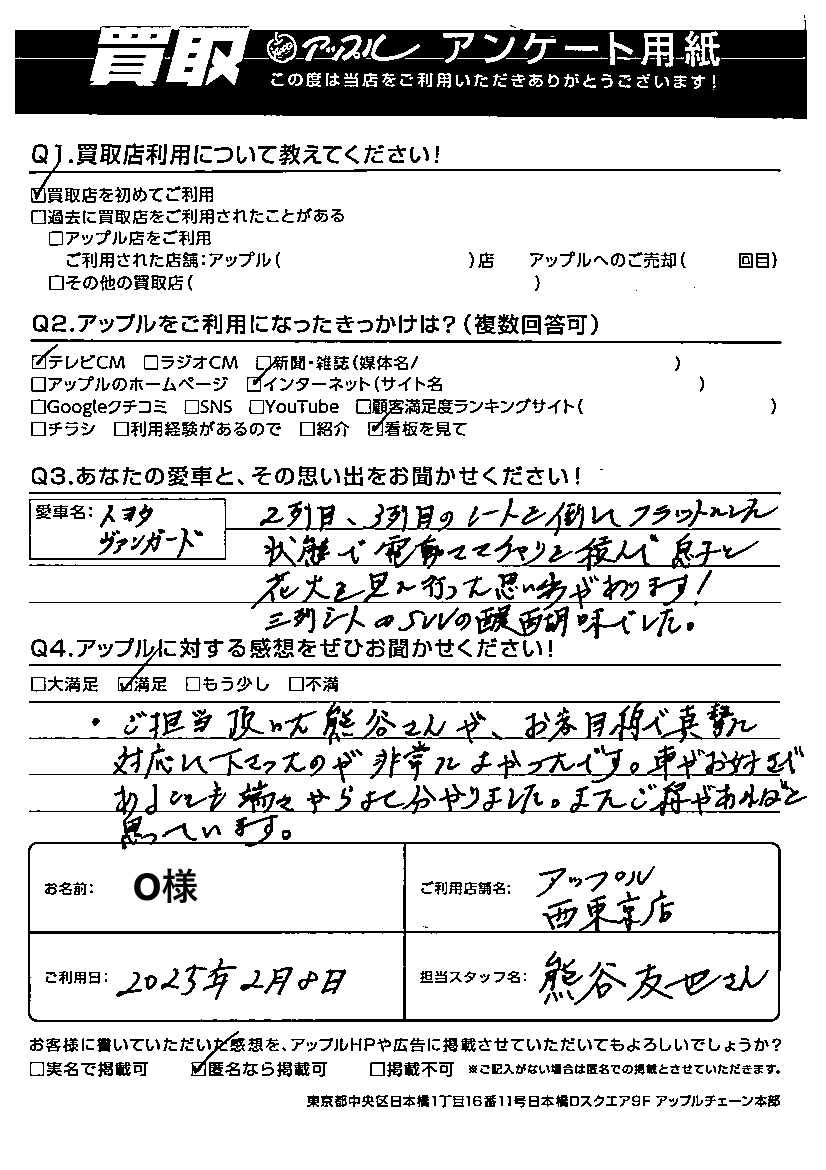 買取 アップル アンケート用紙
この度は当店をご利用いただきありがとうございます!
Q1.買取店利用について教えてください!
☑買取店を初めてご利用
□過去に買取店をご利用されたことがある
□アップル店をご利用
ご利用された店舗:アップル( )店 アップルへのご売却( 回目)
□その他の買取店( )
Q2.アップルをご利用になったきっかけは?(複数回答可)
☑テレビCM □ラジオCM □新聞・雑誌(媒体名/ )
□アップルのホームページ ☑インターネット(サイト名 )
□Googleクチコミ □SNS □YouTube □顧客満足度ランキングサイト( )
□チラシ □利用経験があるので □紹介 ☑看板を見て
Q3.あなたの愛車と、その思い出をお聞かせください!
愛車名:トヨタ
ヴァンガード
2列目、3列目のシートを倒しフラットにした
状態で電動ママチャリを積んで息子と
花火を見に行った思い出があります!
三列シートのSUVの醍醐味でした。
Q4.アップルに対する感想をぜひお聞かせください!
□大満足 ☑満足 □もう少し □不満
・ご担当頂いた熊谷さんが、お客目線で真摯に
対応して下さったのが非常によかったです。車がお好きで
あることも端々からよく分かりました。またご縁があればと
思っています。
お名前: O様
ご利用店舗名: アップル
西東京店
ご利用日: 2025年2月8日
担当スタッフ名: 熊谷友也さん
お客様に書いていただいた感想を、アップルHPや広告に掲載させていただいてもよろしいでしょうか?
□実名で掲載可 ☑匿名なら掲載可 □掲載不可 ※ご記入がない場合は匿名での掲載とさせていただきます。
東京都中央区日本橋1丁目16番11号日本橋ロスクエア9F アップルチェーン本部